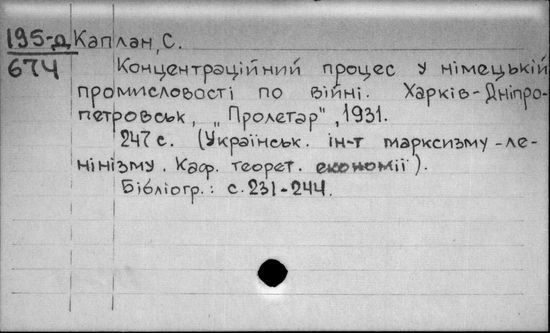 195-д Каплан, С.
674 Концентраційний процес у німецькій
промисловості по війні. Харків-Дніпро-
петровськ, „Пролетар", 1931.
247 с. (Українськ. ін-т марксизму-ле-
нінізму. Каф. теорет. економії).
Бібліогр.: с. 231-244.